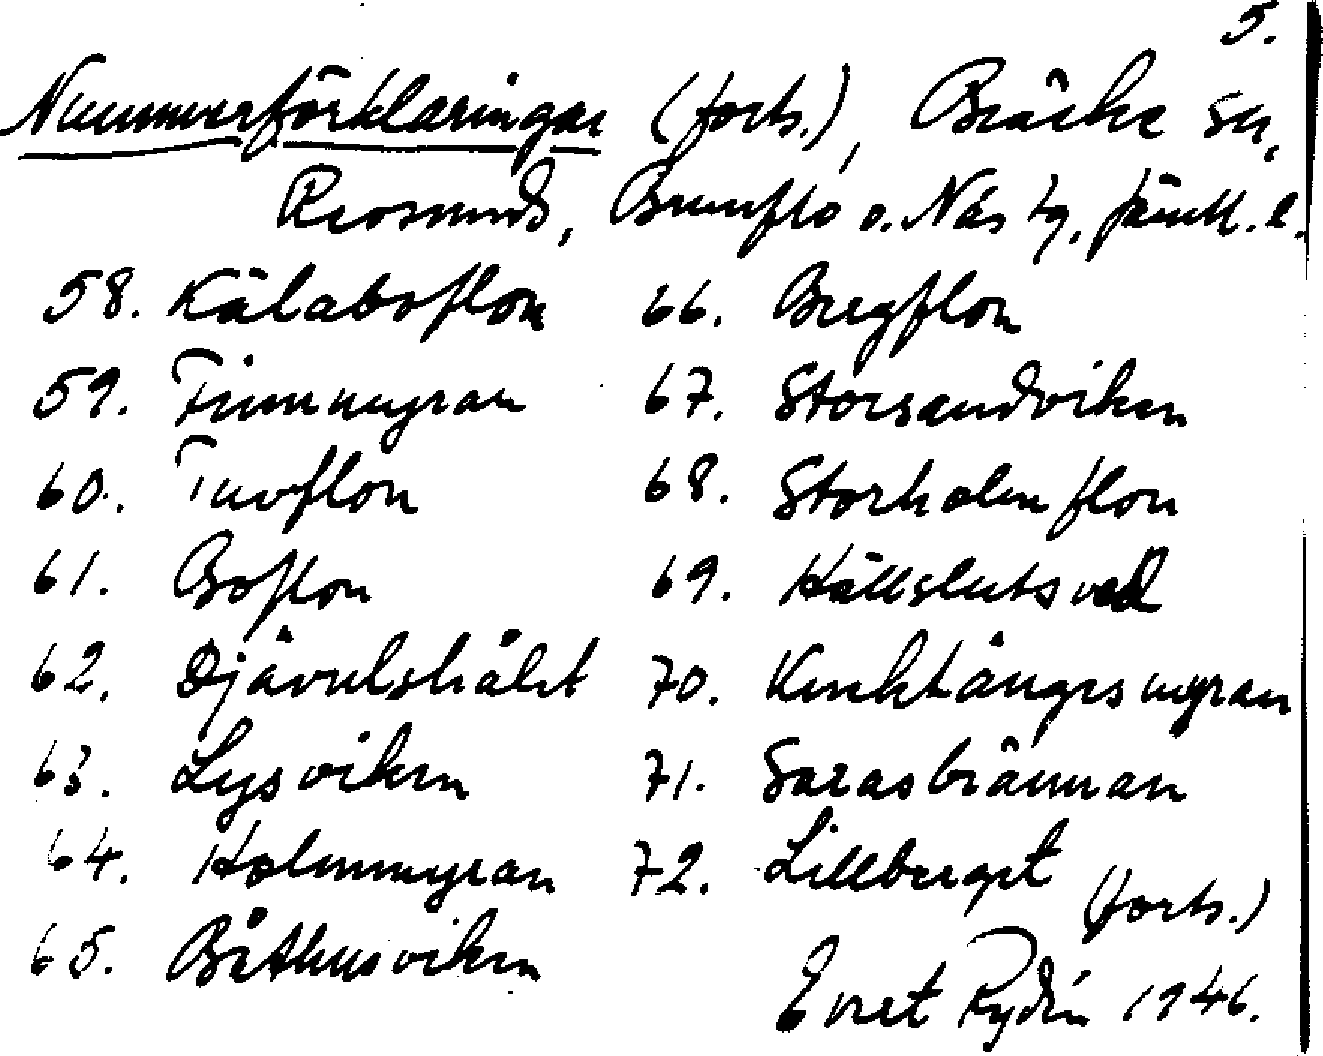 5.
Nummerförklaringar (forts.), Bräcke sn,
Revsunds, Brunflo o. Näs tg. Jämtl. l.
58. Kälaboflon
59. Finnmyran
60. Tuvflon
61. Boflon
62. Djävulshålet
63. Lysviken
64. Holmmyran
65. Båthusviken
66. Bergflon
67. Storsandviken
68. Storholmflon
69. Hällslutsved
70. Kinklångesmyran
71. Sarasbrännan
72. Lillberget
(forts.)
Evert Rydin 1946.